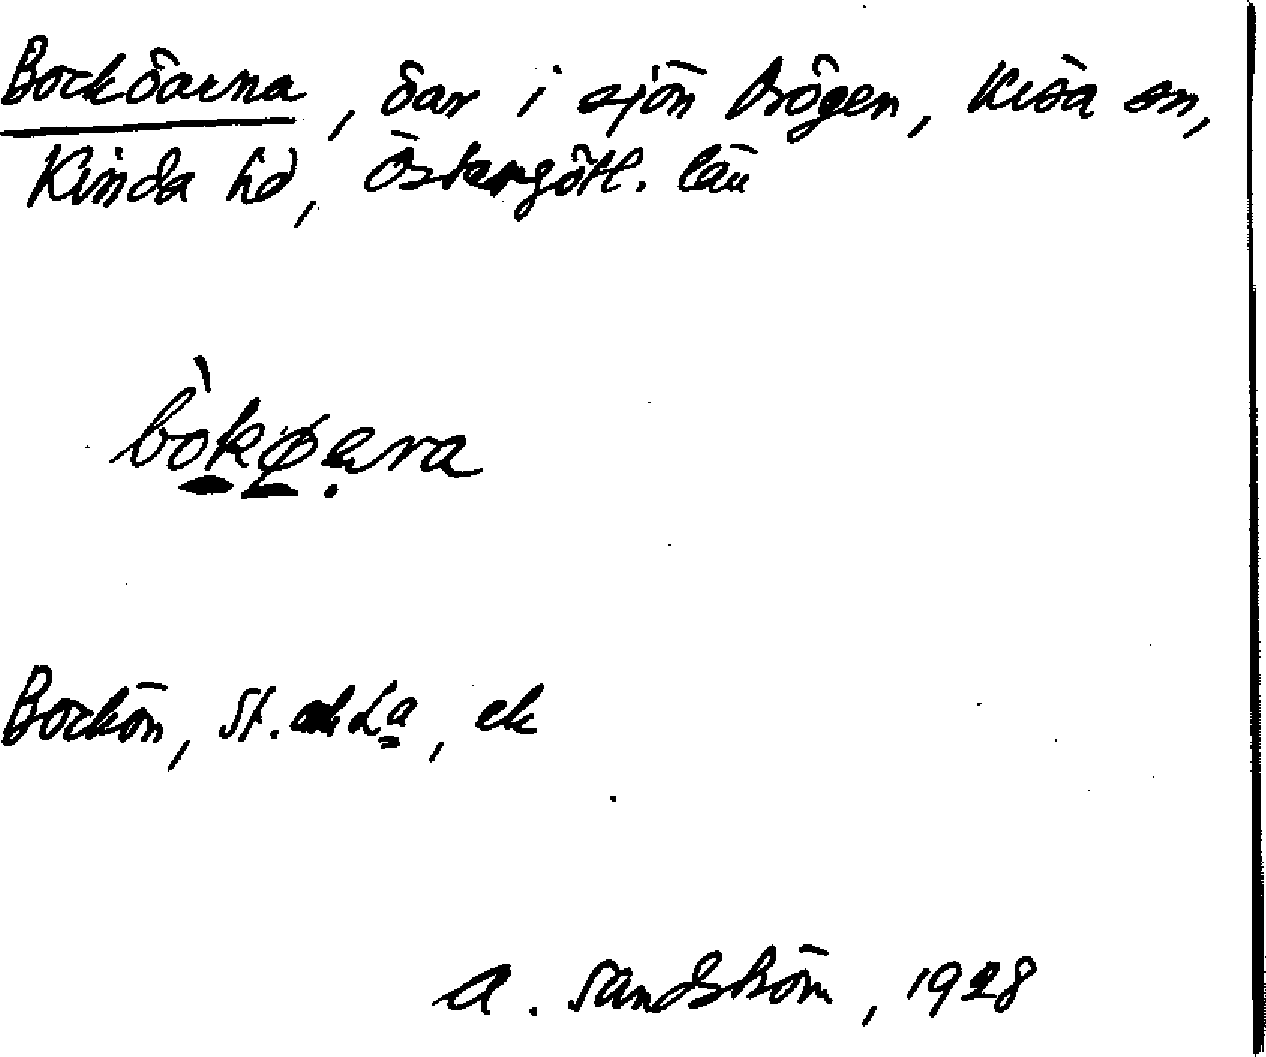 Bocköarna, öar i sjön Drögen, Kisa sn,
Kinda hd, Östergötl. län
bòkøara
Bockön, St. och La, ek
A. Sandström, 1928